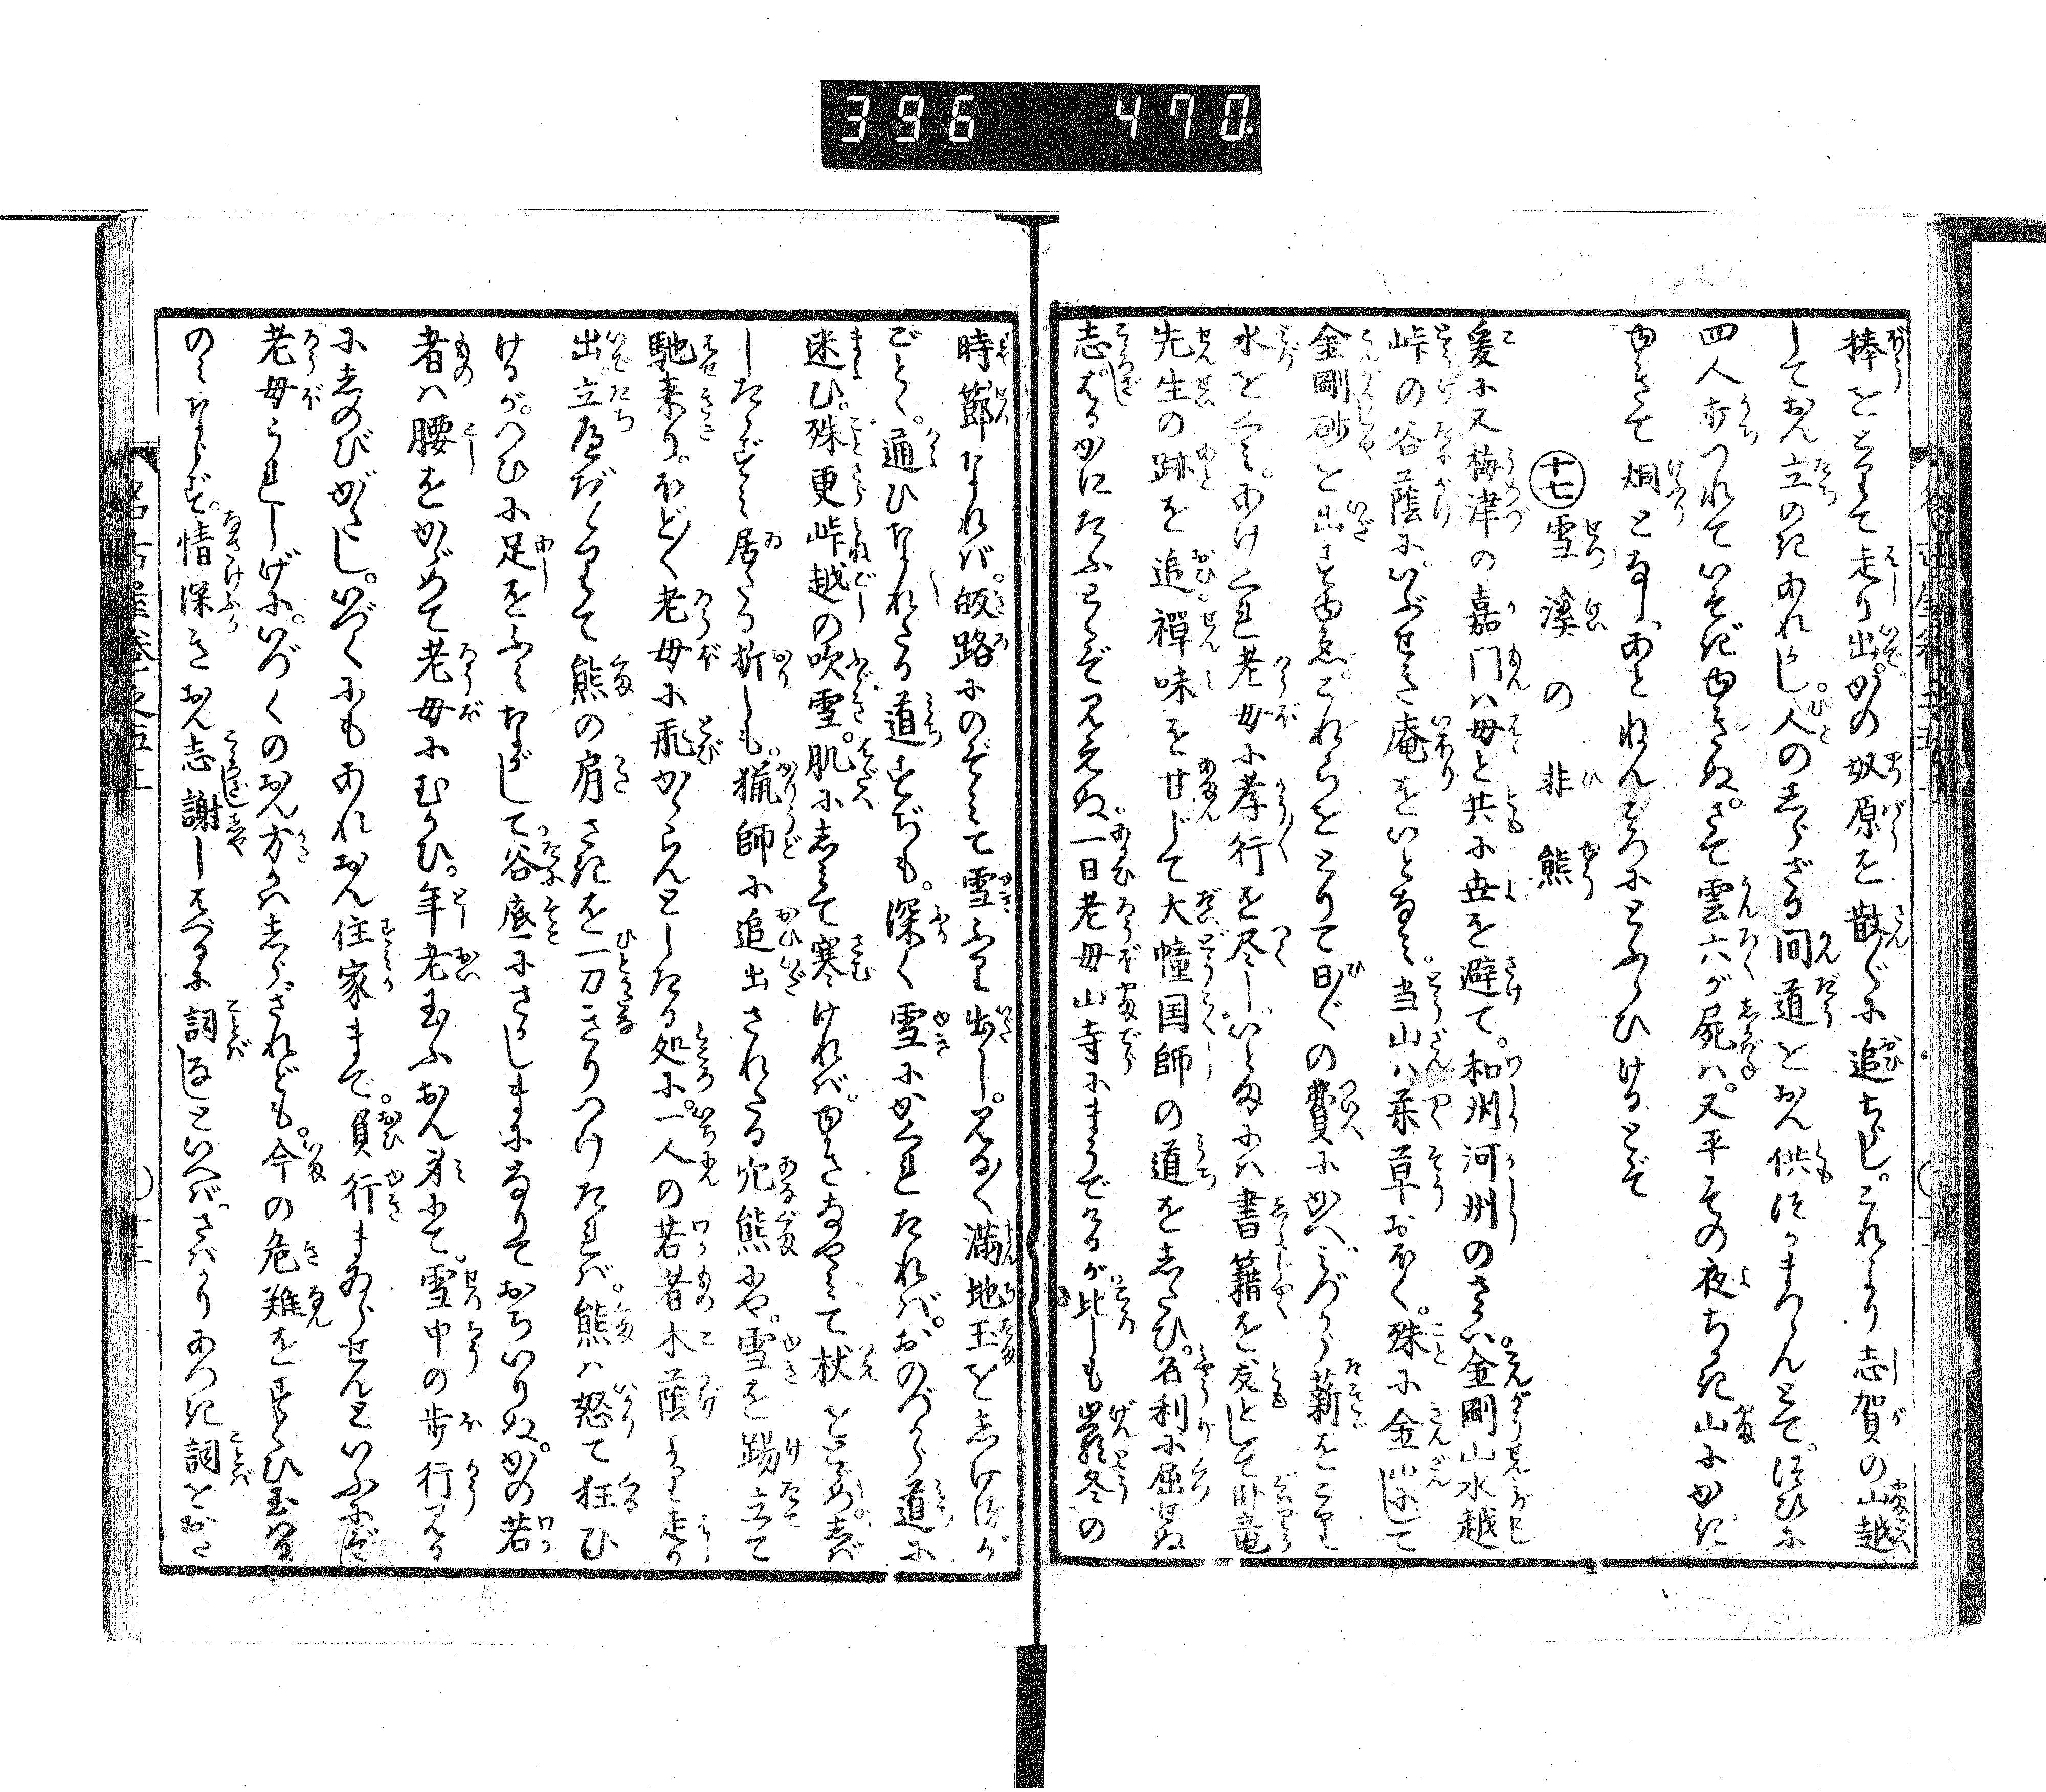 396 470
棒をとりて走り出。かの奴原を散〴〵に追ちらし。これより志賀の山越
しておん立のきあれかし。人のしらざる間道をおん供つかまつらんとて。つひに
四人打つれていそぎゆきぬ。さて雲六が屍は。又平その夜ちかき山にかき
ゆきて烟となし。あとねんごろにとふらひけるとぞ
十七 雪溪の非熊
爰に又梅津の嘉門は母と共に世を避て。和州河州のさかい。金剛山水越
峠の谷蔭に。いぶせき庵をいとなみ。当山は薬草おほく。殊に金山にして
金剛砂を出すゆゑ。これらをとりて日〴〵の費にかへ。みづから薪をこり
水をくみ。あけくれ老母に孝行を尽し。いとまには書籍を友として臥竜
先生の跡を追。禅味を甘じて大幢国師の道をしたひ。名利に屈せぬ
志。はるかにたふとくぞ見えぬ。一日老母山寺にまうでけるが。比しも厳冬の
時節なれば。皈路にのぞみて雪ふり出し。見る〳〵満地玉をしけるが
ごとく。通ひなれたる道すぢも。深く雪にかくれたれば。おのづから道に
迷ひ。殊更峠越の吹雪。肌にしみて寒ければ。ゆきなやみて杖をとゞめ。しば
したゝずみ居たる折しも。猟師に追出されたる穴熊にや。雪を踢立て
馳来り。ほどなく老母に飛かゝらんとしたる処に。一人の若者木蔭より走り
出。立ふさがりて熊の肩さきを一刀きりつけたれば。熊は怒て狂ひ
けるが。つひに足をふみはづして谷底にさかしまになりておちいりぬ。かの若
者は腰をかゞめて老母にむかひ。年老玉ふおん身にて。雪中の歩行見る
にしのびがたし。いづくにもあれおん住家まで。負行まゐらせんといふにぞ
老母うれしげに。いづくのおん方かはしらざれども。今の危難をすくひ玉はる
のみならず。情深きおん志謝しはべるに詞なしといへば。さばかりあつき詞をおさ